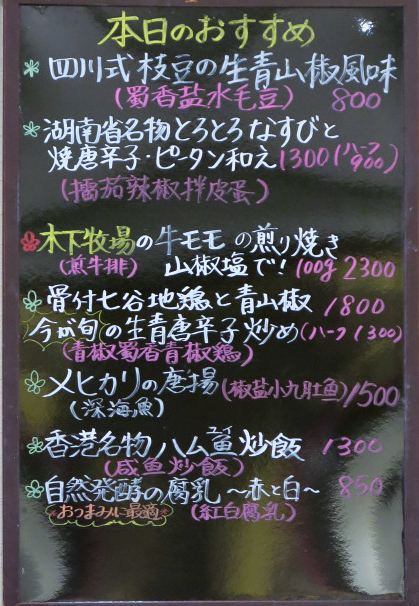 本日のおすすめ
四川式枝豆の生青山椒風味
(蜀香盐水毛豆) 800
湖南省名物とろとろなすびと
焼唐辛子・ピータン和え 1300 (ハーフ 900)
(擂茄辣椒拌皮蛋)
木下牧場の牛モモの煎り焼き
(煎牛排) 山椒塩で! 100g 2300
骨付七谷地鶏と青山椒 1800
今が旬の生青唐辛子炒め (ハーフ 1300)
(青椒蜀香青椒鶏)
メヒカリの唐揚 (椒盐小九肚鱼) 1500
(深海魚)
香港名物ハム鱼炒飯 1300
(咸鱼炒飯)
自然発酵の腐乳 〜赤と白〜 850
おつまみに最適 (紅白腐乳)